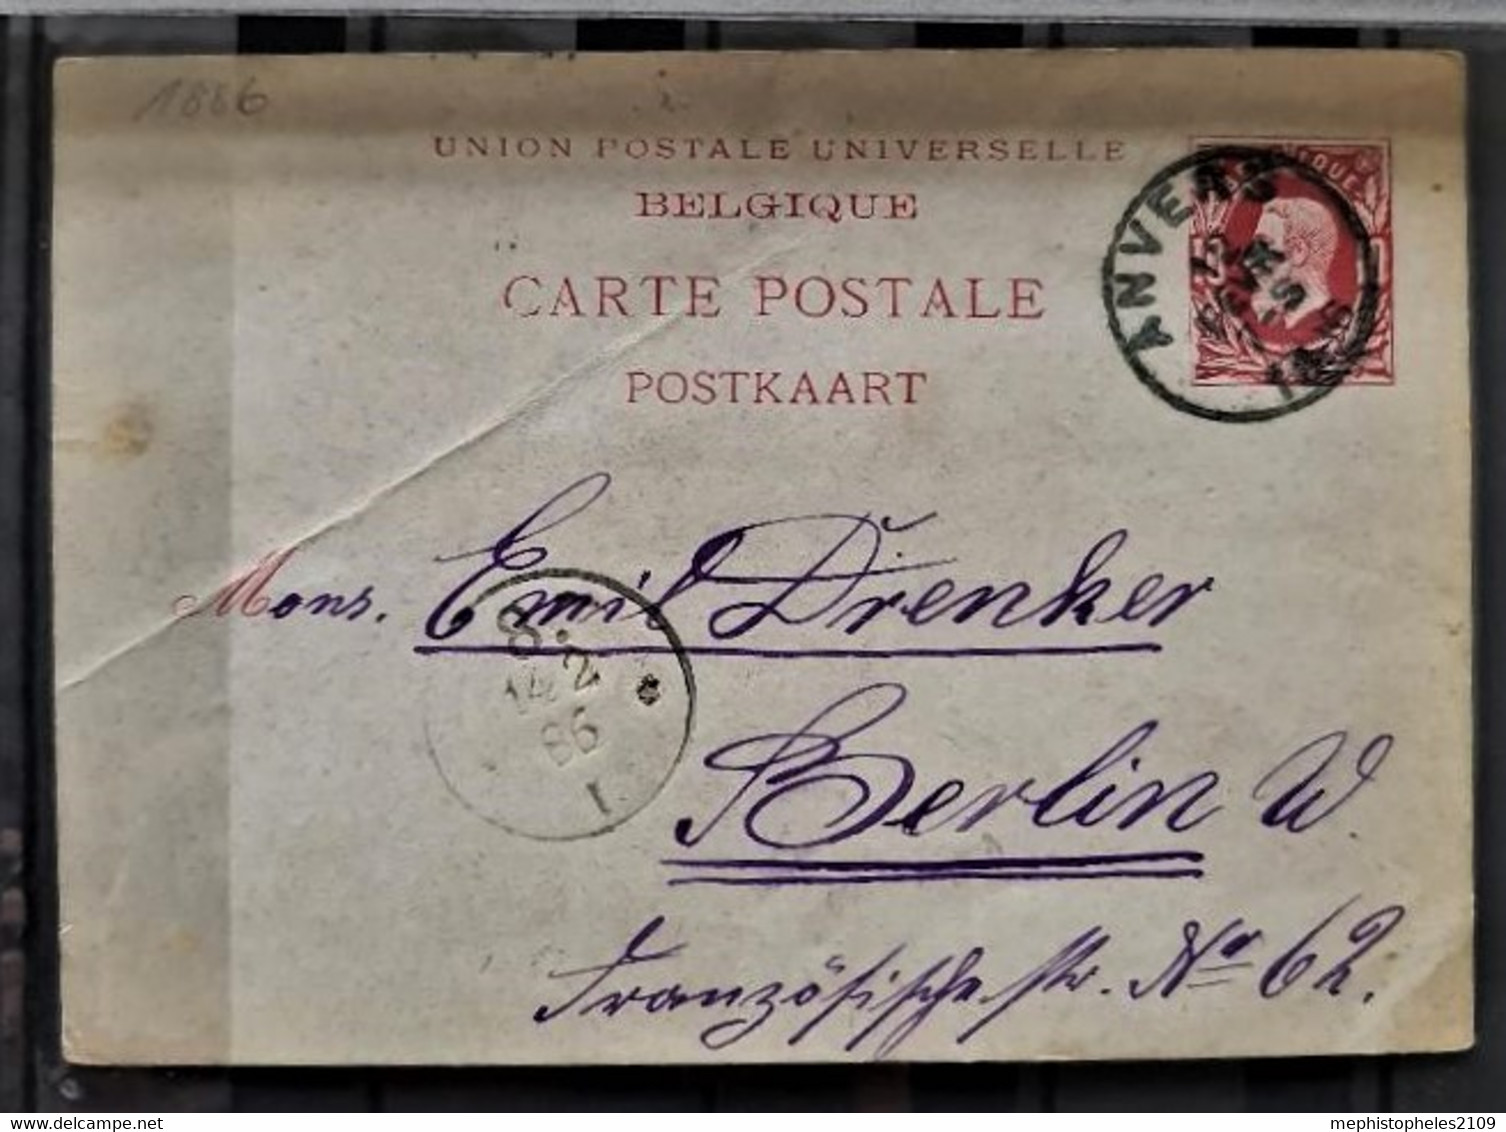 1886
UNION POSTALE UNIVERSELLE
BELGIQUE
CARTE POSTALE
POSTKAART
ANVERS
Mons. Emil Drenker
8.
14 2
86
1.
Berlin W.
Französische str. No 62.
delcampe.net
mephistopheles2109